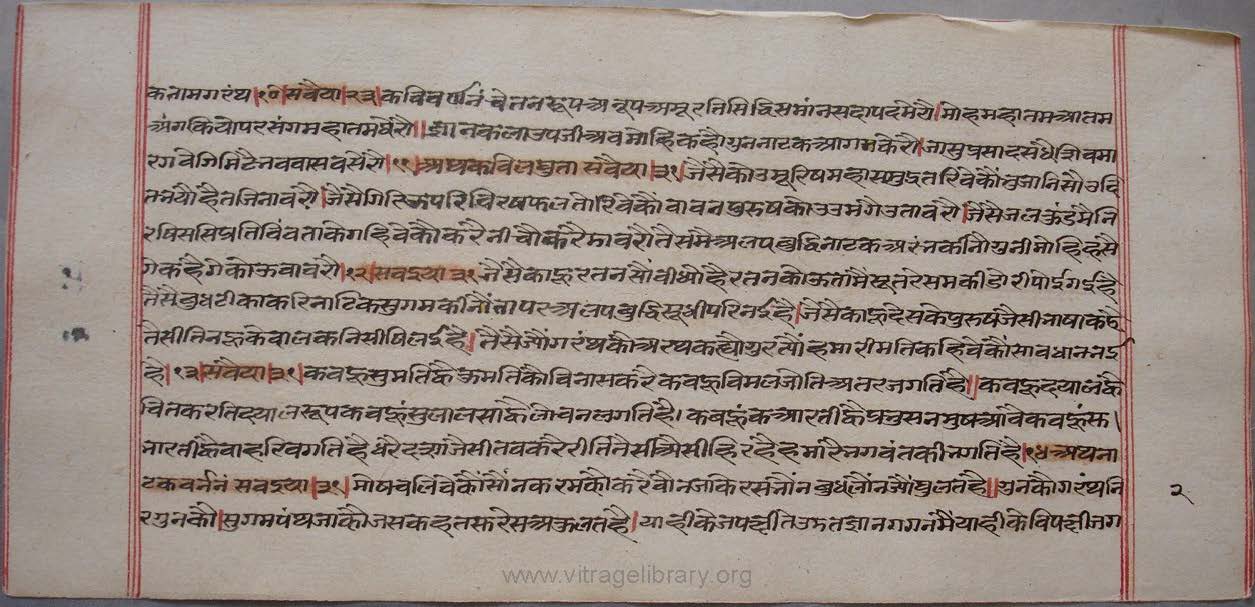 कनामगरंथ।१०।सवैया।२३।कविवर्णनं चेतनरूपअनूपअमूरतिसिद्धिसमांनसदापदमेरौ।मोहमहातमआतम
अंगकियोपरसंगमहातमघेरौ।ज्ञानकलाउपजीअबमोहिकहौगुननाटकआगमकेरौ।जासुप्रसादसधैशिवमा
रगवेगिमिटैभववासवसेरौ।११।अथकविलघुता सवैया।३१।जैसैकोउमूरिषमहासमुद्रतरिवेकौंभुजानिसौउदि
तभयौहैतजिनावरौ।जैसैगिरिऊपरिविरषफलतोरिवेकौंवावनपुरुषकोउउमगैउतावरौ।जैसैजलकुंडमैनि
रषिससिप्रतिविंवताकेगहिवेकौकरनीचौकरैडावरौतैसैमैअलपबुद्धिनाटकआरंभकीनौगुनीमोहिहसै
गेकहैगेकोऊवावरौ।१२।सवइया ३१ जैसैकाहूरतनसौंवीध्योहैरतनकोऊतामैसूतरेसमकीडोरीपोईगईहै
तैसैबुधटीकाकरिनाटिकसुगमकीनौतापरअलपबुद्धिसूधीपरिनईहै।जैसैकाहूदेसकेपुरुषजैसीभाषाकहै
तैसीतिनहूकेवालकनिसीषिलईहै।तैसैज्यौंगरंथकौअरथकह्यौगुरत्यौंहमारीमतिकहिवेकौंसावधानभई
है।१३।सवैया।३१।कवहूसुमतिह्वैकुमतिकौविनासकरैकवहूविमलजोतिअंतरजगतिहै।कवहूदयालह्वै
चितकरतिदयालरूपकवहूंसुलालसाह्वैलोचनलगतिहै।कवहूंकआरतीह्वैप्रभुसनमुषआवैकवहूंसु
भारतीह्वैवाहरिवगतिहैधरैदसाजैसीतवकरैरीतितैसीऐसीहिरदैहमारैभगवंतकीभगतिहै।१४अथना
टकवर्ननं सवइया।३१।मोषचलिवेकौंसौंनकरमकौकरैवौनजाकेरसभौंनबुधलौंनज्यौंघुलतहै।गुनकौगरंथनि
रगुनकौसुगमपंथजाकौजसकहतसुरेसअकुलतहै।याहीकेजपक्षीतेउडतज्ञानगगनमैंयाहीकेविपक्षीजग
२
www.vitragelibrary.org